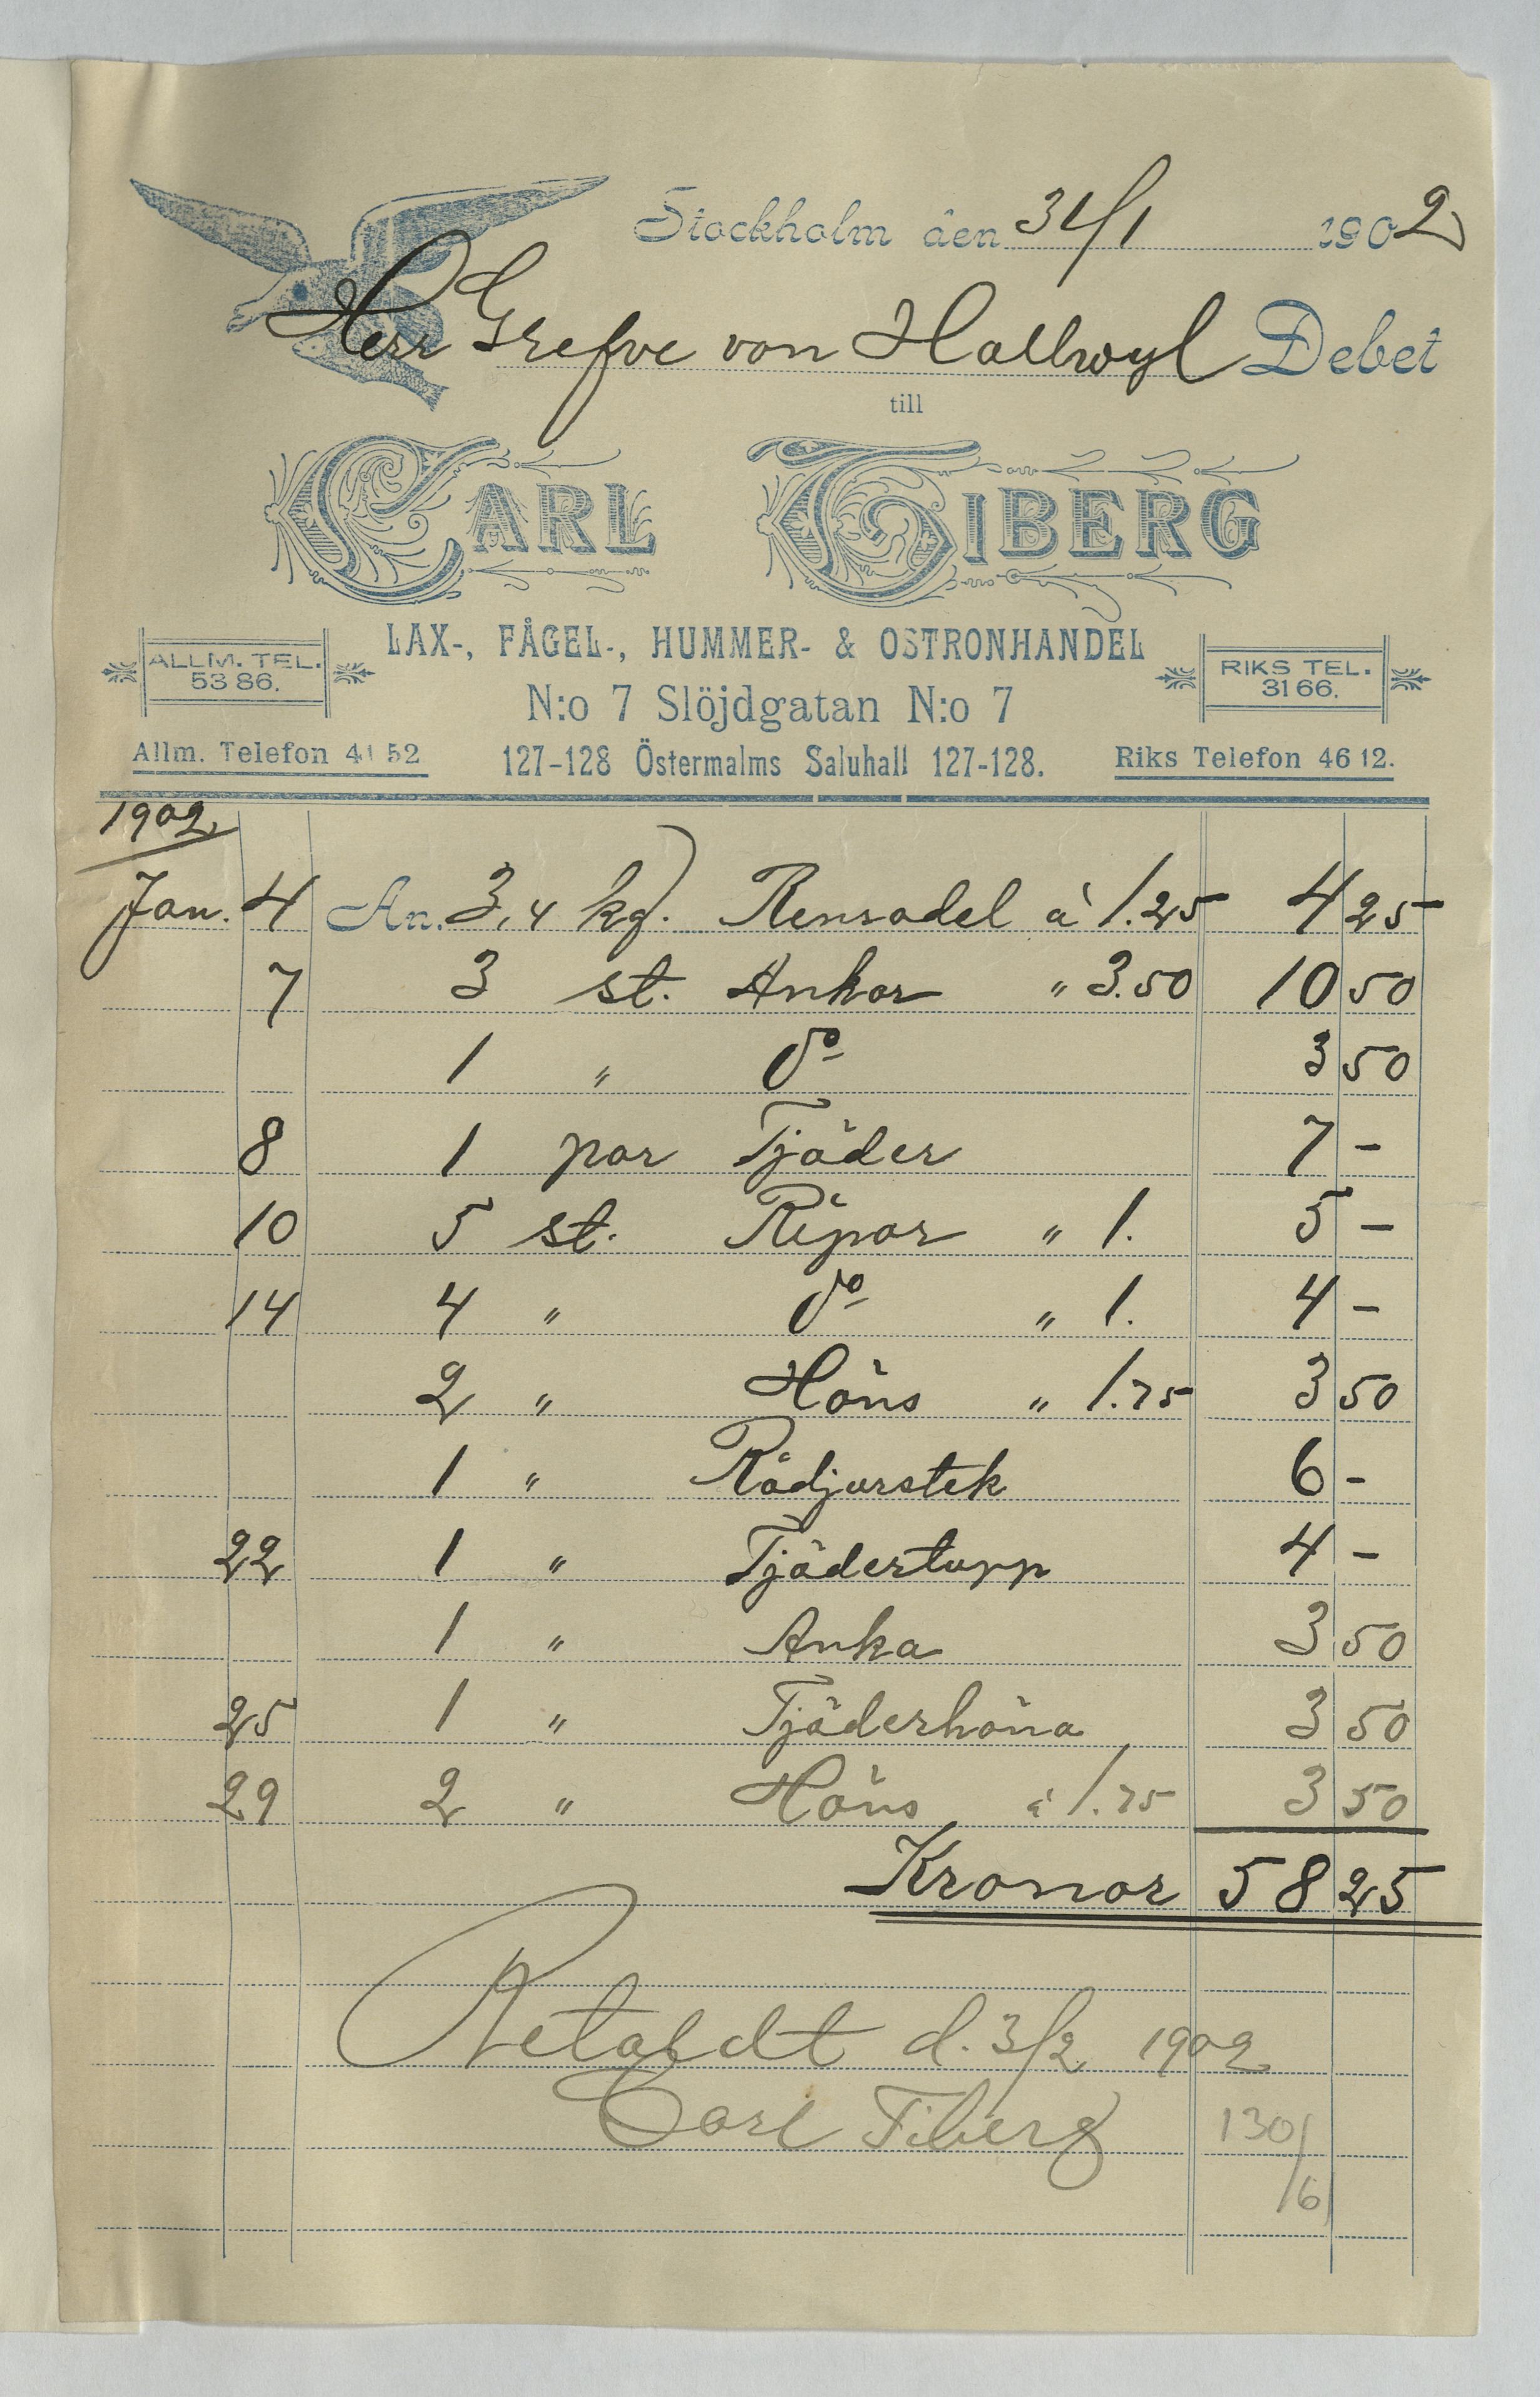 Stockholm den 31/1 1902
Herr Grefve von Hallwyl Debet
till
CARL TIBERG
LAX-, FÅGEL-, HUMMER- & OSTRONHANDEL
ALLM. TEL. 53 86.
RIKS TEL. 31 66.
N:o 7 Slöjdgatan N:o 7
Allm. Telefon 41 52 127-128 Östermalms Saluhall 127-128. Riks Telefon 46 12.
1902
Jan. 4 An. 3,4 kg. Rensadel à 1.25 4 25
7 3 st. Ankor " 3.50 10 50
1 " do 3 50
8 1 par Tjäder 7 -
10 5 st. Ripor " 1. 5 -
14 4 " do " 1. 4 -
2 " Höns " 1.75 3 50
1 " Rådjurstek 6 -
22 1 " Tjädertupp 4 -
1 " Anka 3 50
25 1 " Tjäderhöna 3 50
29 2 " Höns à 1.75 3 50
Kronor 58 25
Betaldt d. 3/2 1902
Carl Tiberg
130/6